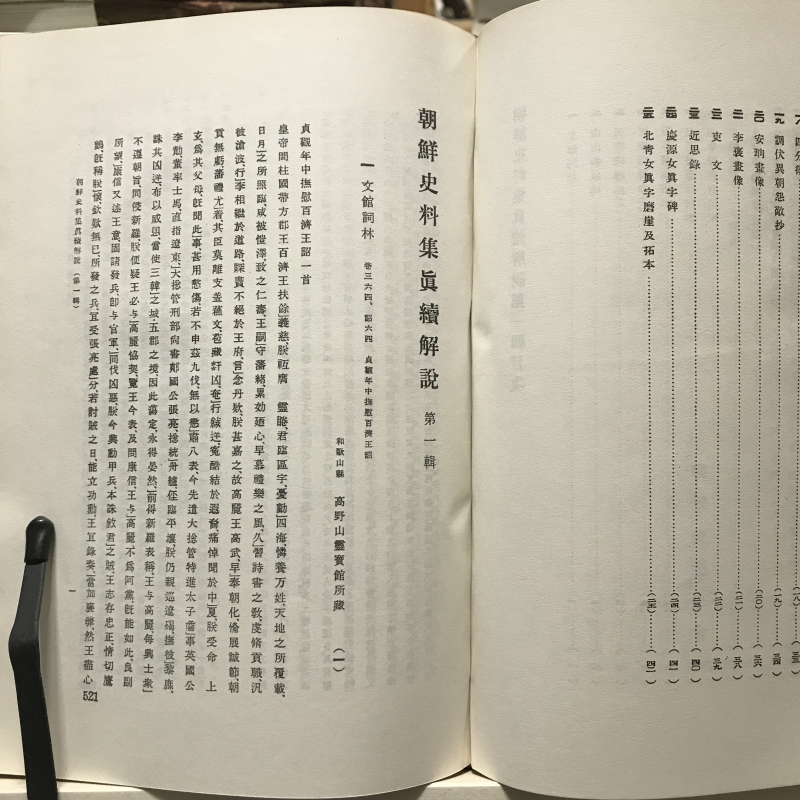 一九 調伏異朝怨敵抄……(一九)……(三四)
二〇 安珦畫像……(二〇)……(三六)
二一 李褒畫像……(二一)……(三八)
二二 吏文……(二二)……(三九)
二三 近思錄……(二三)……(四〇)
二四 慶源女眞字碑……(二四)……(四一)
二五 北靑女眞字磨崖及拓本……(二五)……(四二)
朝鮮史料集眞續解說 第一輯
一 文館詞林 卷三六四、詔六四 貞觀年中撫慰百濟王詔
和歌山縣 高野山靈寶館所藏 (一)
貞觀年中撫慰百濟王詔一首
皇帝問柱國帶方郡王百濟王扶餘義慈、朕祗膺 靈睠、君臨區宇、憂勤四海、憐養万姓、天地之所覆載、
日月之所照臨、咸被愷澤、致之仁壽、王嗣守藩緖、累効廼心、早慕禮樂之風、久習詩書之敎、虔脩貢職、汎
彼滄波、行李相繼於道路、賝賮不絕於王府、言念丹欵、朕甚嘉之、故高麗王高武、早奉朝化、備展誠節、朝
貢無虧、藩禮尤着、其臣莫離支盖蘓文、苞藏姧凶、奄行弑逆、寃酷結於遐裔、痛悼聞於中夏、朕受命 上
玄、爲其父母、旣聞此事、甚用慜傷、若不申茲九伐、無以懲肅八表、今先遣大捴管特進太子詹事英國公
李勣、董率士馬、直指遼東、大捴管刑部尙書鄖國公張亮、捴統舟艫、徑臨平壤、朕仍親巡遼碣、撫彼黎庶、
誅其凶逆、布以威恩、當使三韓之城、五郡之境、因此蕩定、永得晏然、前得新羅表稱、王与高麗、每興士衆、
不遵朝旨、同侵新羅、朕便疑王必与高麗協契、覽王今表、及問康信、王与高麗不爲阿黨、旣能如此、良副
所望、康信又述王意、固請發兵、卽与官軍、同伐凶惡、朕今興動甲兵、本誅弑君之賊、王志存忠正、情切鷹
鸇、旣稱朕懷、欽歎無已、所發之兵、宜受張亮處分、若討賊之日、能立功勳、王宜錄奏、當加襃獎、然王盡心
朝鮮史料集眞續解說(第一輯)
一
521